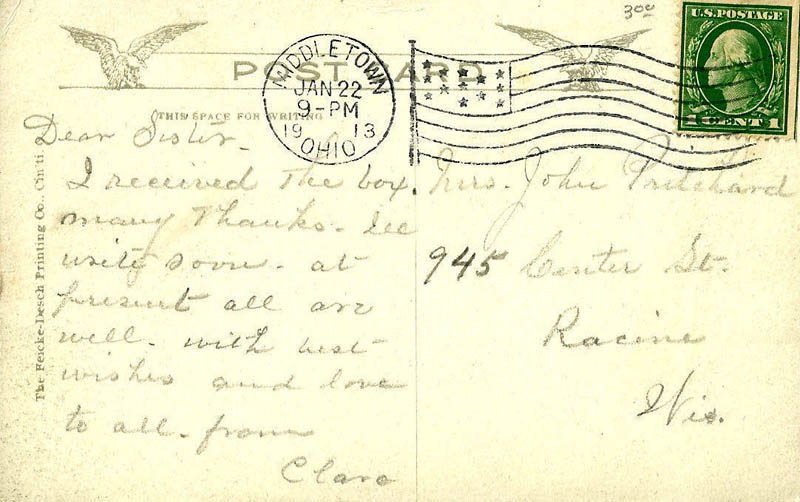 3.00
U.S. POSTAGE
1 CENT 1
POST CARD
MIDDLETOWN
JAN 22
9-PM
1913
OHIO
THIS SPACE FOR WRITING
Dear Sister-
I received the box.
many thanks. Ill
write soon. at
present all are
well. with best
wishes and love
to all. from
Clara
Mrs. John Pritchard
945 Center St.
Racine
Wis.
The Feicke-Desch Printing Co., Cin'ti